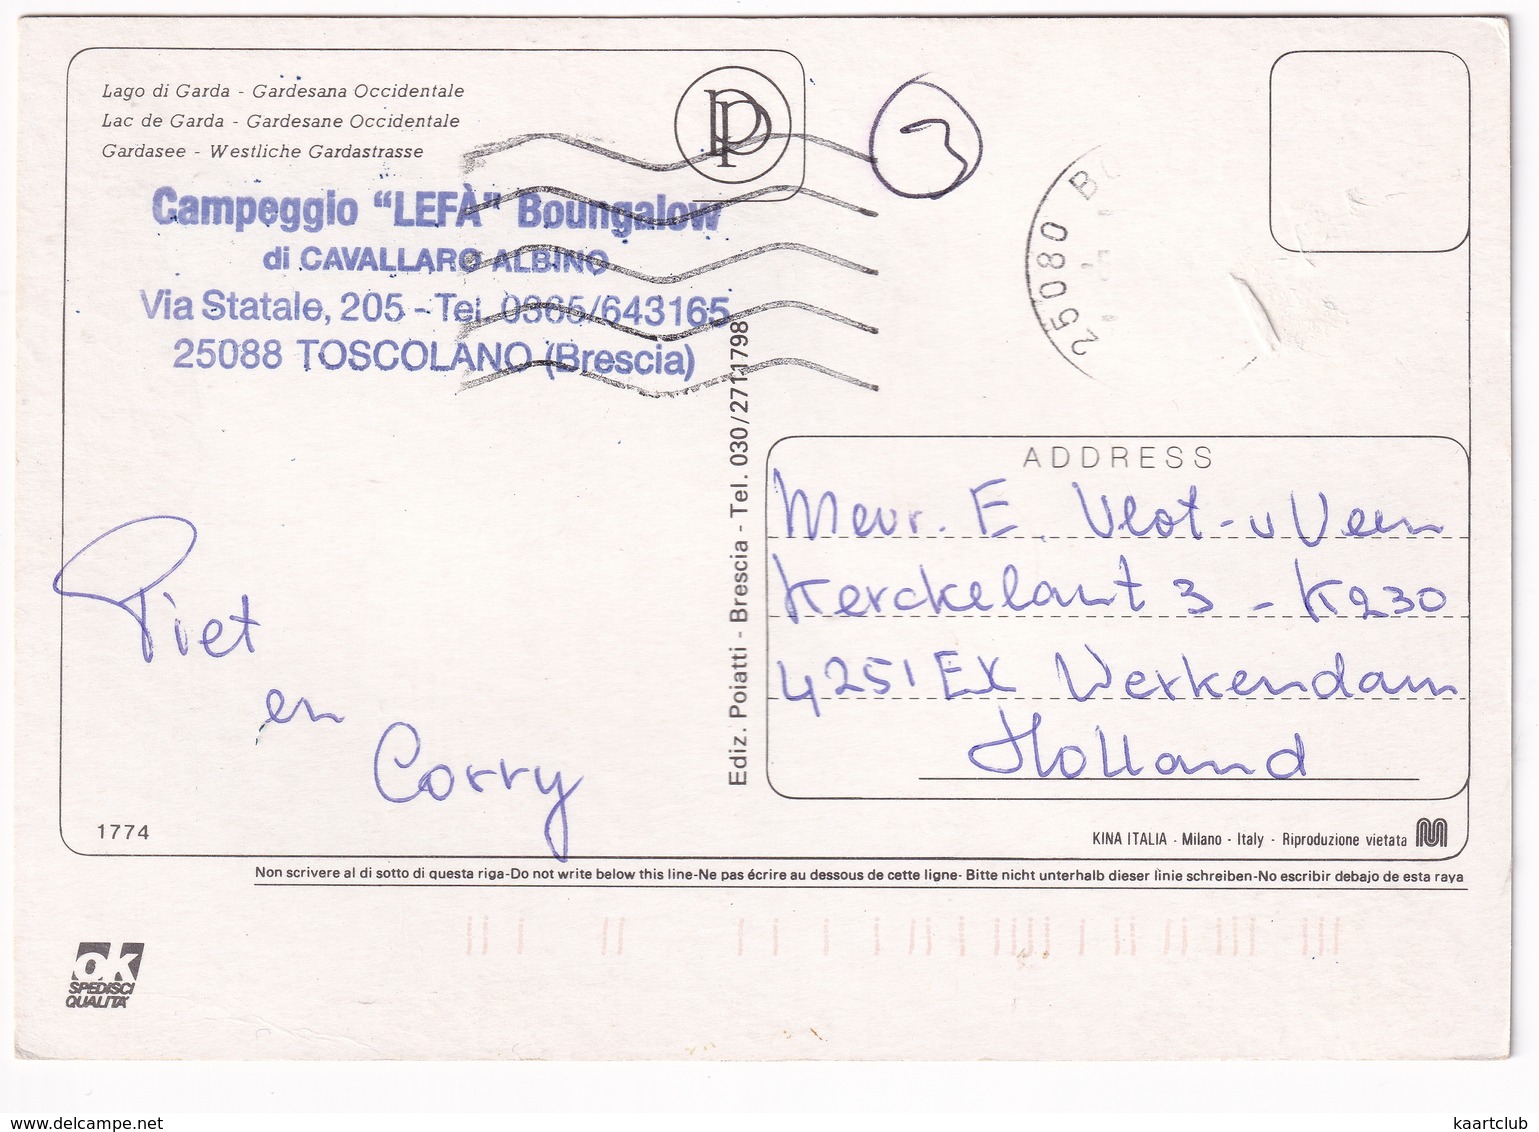 Lago di Garda - Gardesana Occidentale
Lac de Garda - Gardesane Occidentale
Gardasee - Westliche Gardastrasse
PP
3
25080
Campeggio "LEFÀ" Boungalow
di CAVALLARO ALBINO
Via Statale, 205 - Tel. 0365/643165
25088 TOSCOLANO (Brescia)
Piet
en
Corry
1774
Ediz. Poiatti - Brescia - Tel. 030/2711798
ADDRESS
Mevr. E. Vlot - v Veen
Kerckelant 3 - K230
4251 EX Werkendam
Holland
KINA ITALIA - Milano - Italy - Riproduzione vietata
Non scrivere al di sotto di questa riga-Do not write below this line-Ne pas écrire au dessous de cette ligne- Bitte nicht unterhalb dieser linie schreiben-No escribir debajo de esta raya
ok
SPEDISCI
QUALITÀ
delcampe.net
kaartclub